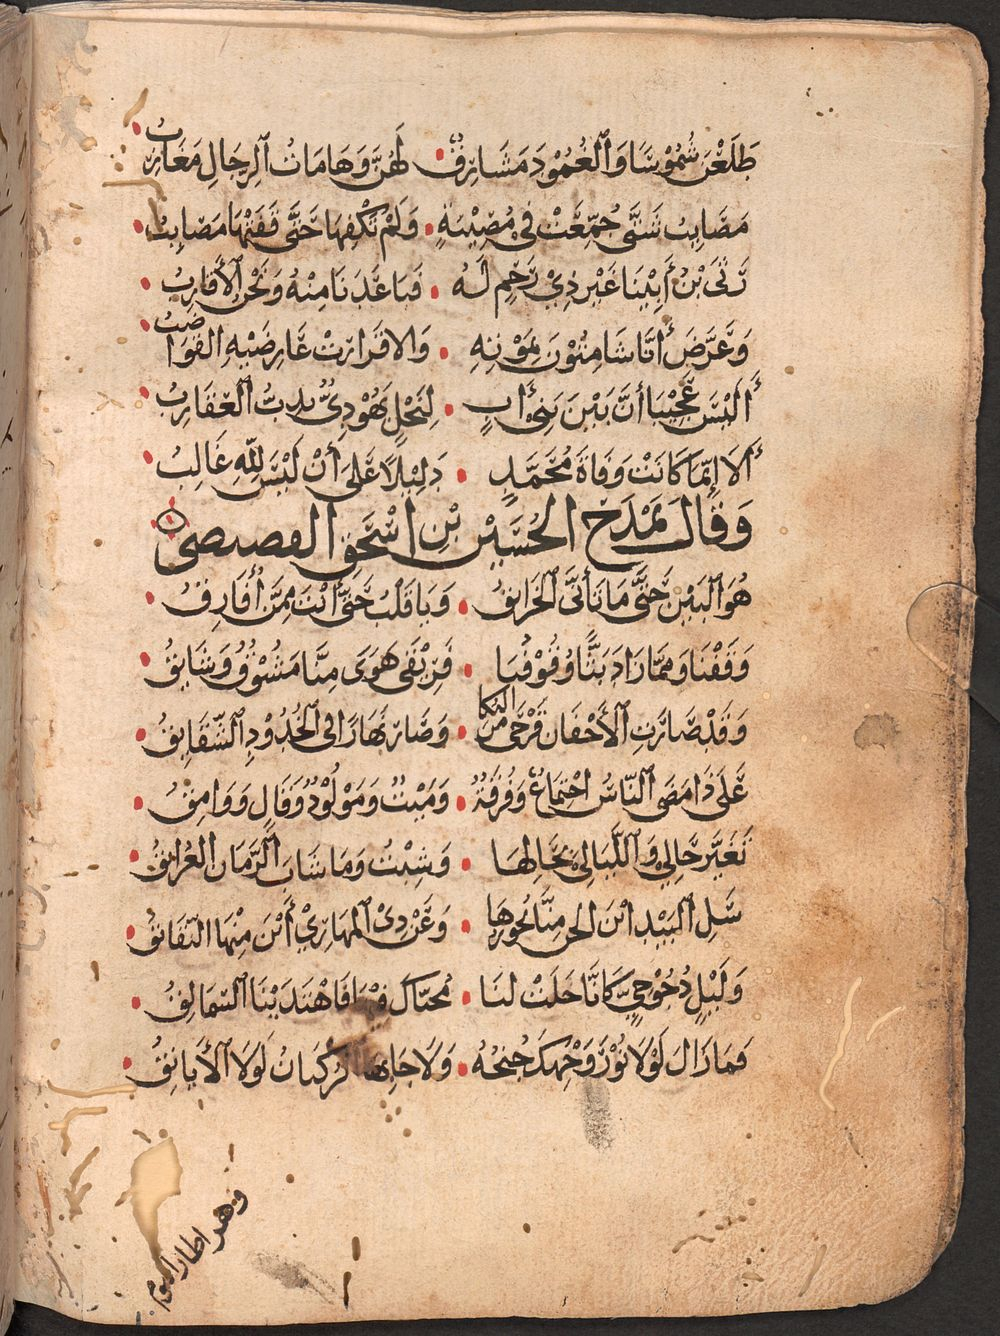 طَلَعْنَ شُمُوْسًا وَالْغُمُوْدَ مَشَارِقٌ لَهُنَّ وَهَامَاتُ الرِّجَالِ مَغَارِبُ
مَصَائِبُ شَتَّى جُمِّعَتْ فِي مُصِيْبَةٍ وَلَمْ تَكْفِهَا حَتَّى قَفَتْهَا مَصَائِبُ
رَثَى بْنُ أَبِيْنَا غَيْرَ ذِيْ رَحِمٍ لَهُ فَبَاعَدَنَا مِنْهُ وَنَحْنُ الْأَقَارِبُ
وَعَرَّضَ أَنَّا شَامِتُوْنَ بِمَوْتِهِ وَالا فَزَارَتْ عَارِضَيْهِ القَوَاضِبُ
أَلَيْسَ عَجِيْبًا أَنَّ بَيْنَ بَنِيْ أَبٍ لِنَجْلِ يَهُوْدِيٍّ تَدِبُّ الْعَقَارِبُ
أَلَا إِنَّمَا كَانَتْ وَفَاةُ مُحَمَّدٍ دَلِيْلًا عَلَى أَنْ لَيْسَ لِلّٰهِ غَالِبُ
وَقَالَ يَمْدَحُ الحُسَيْنَ بْنَ اسْحَق
هُوَ الْبَيْنُ حَتَّى مَا تَأَنَّى الْحَزَائِقُ وَيَا قَلْبُ حَتَّى أَنْتَ مِمَّنْ أُفَارِقُ
وَقَفْنَا وَمِمَّا زَادَ بَثًّا وُقُوْفُنَا فَرِيْقَيْ هَوَى مِنَّا مَشُوْقٌ وَشَائِقُ
وَقَدْ صَارَتِ الْأَجْفَانُ قَرْحَى مِنَ البُكَا وَصَارَ بَهَارًا فِي الْخُدُوْدِ الشَّقَائِقُ
عَلَى ذَا مَضَى النَّاسُ اجْتِمَاعٌ وَفُرْقَةٌ وَمَيْتٌ وَمَوْلُوْدٌ وَقَالٍ وَوَامِقُ
تَغَيَّرَ حَالِيْ وَاللَّيَالِي بِحَالِهَا وَشِبْتُ وَمَا شَابَ الزَّمَانُ الغُرَانِقُ
سَلِ الْبِيْدَ ايْنَ الجن مِنَّا بِجَوْزِهَا وَعَنْ ذِيْ الْمَهَارِيْ أَيْنَ مِنْهَا النَّقَانِقُ
وَلَيْلٍ دَجُوْجِيٍّ كَانَّا جَلَتْ لنا مُحَيَّاكَ فِيْهِ فَاهْتَدَيْنَا السَّمَالِقُ
فَمَا زَالَ لَوْلَا نُوْرُ وَجْهِكَ جُنْحُهُ وَلَا جَابَهَا الرُّكْبَانُ لَوْلَا الْأَيَانِقُ
وهز اطار النوم